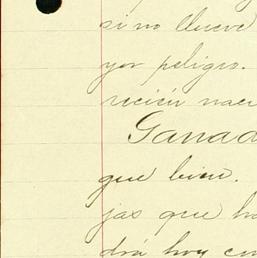 si no llueve
yor peligro.
recien nac
Ganad
que bien.
jas que ha
drá hoy en